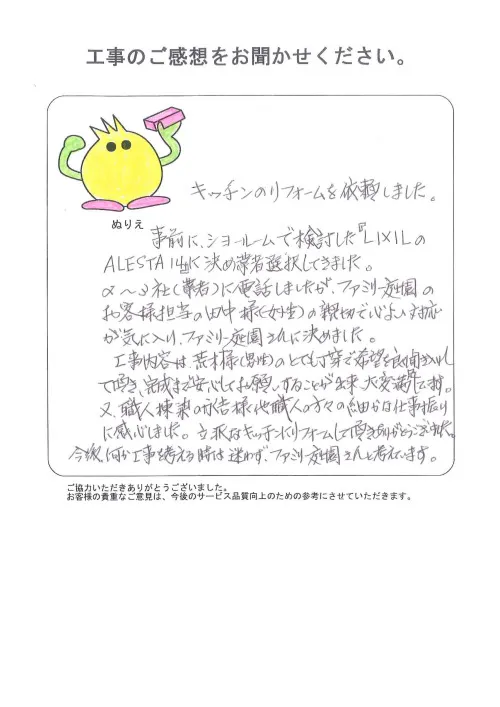 工事のご感想をお聞かせください。
キッチンのリフォームを依頼しました。
ぬりえ
事前に、ショールームで検討した『LIXILの
ALESTA』に決め業者選択してきました。
2~3社(業者)に電話しましたが、ファミリー庭園の
お客様担当の田中様(女性)の親切で心よい対応
が気に入り、ファミリー庭園さんに決めました。
工事内容は、荒木様(男性)のとても丁寧で希望を良聞き入れ
て頂き、完成まで安心してお願いすることが出来、大変満足です。
又、職人棟梁の永吉様や他職人の方々の細かな仕事振り
に感心しました。立派なキッチンにリフォームして頂きありがとうございました。
今後、何か工事を考える時は迷わず、ファミリー庭園さんと考えています。
ご協力いただきありがとうございました。
お客様の貴重なご意見は、今後のサービス品質向上のための参考にさせていただきます。